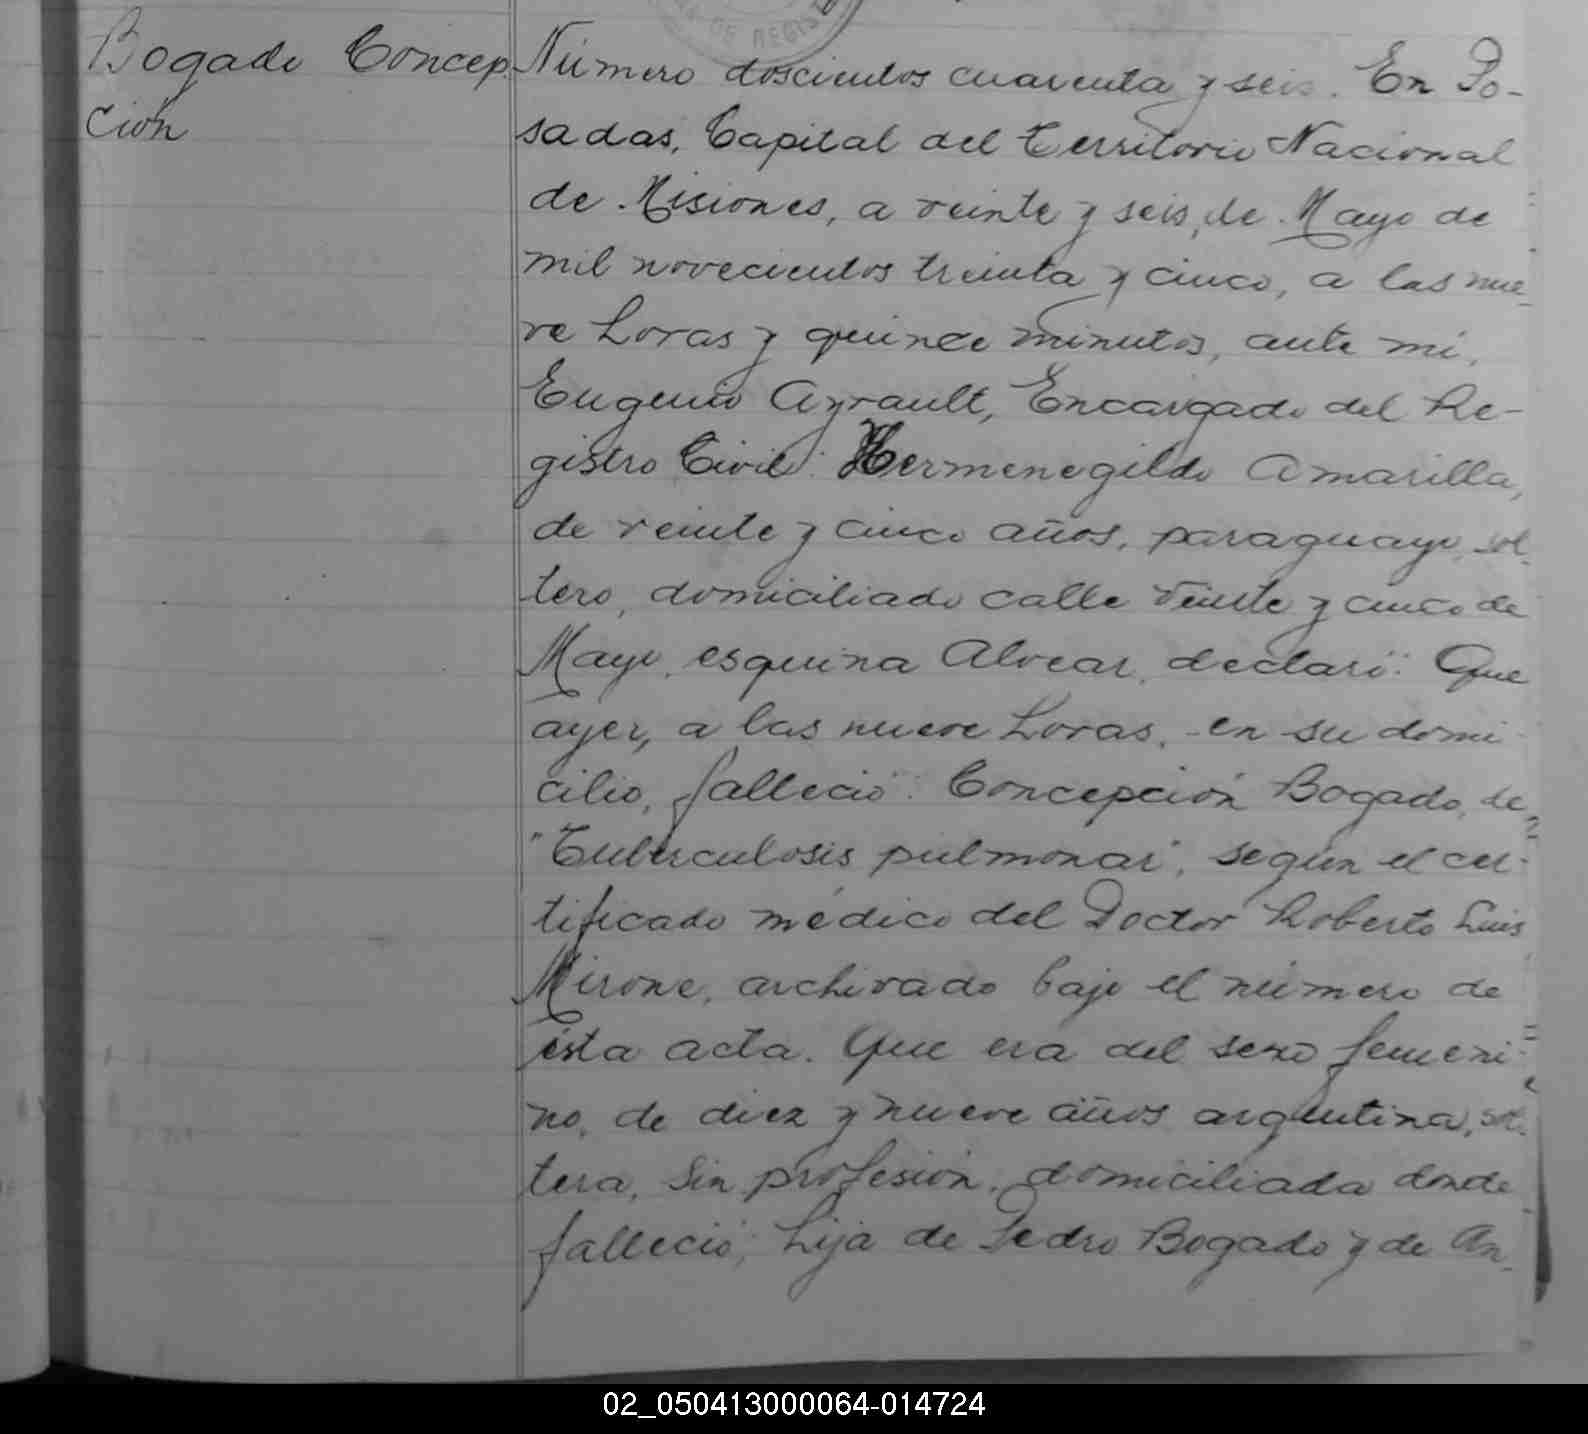 DE REGIS
Bogado Concep
ción
Número doscientos cuarenta y seis. En Po-
sadas, Capital del Territorio Nacional
de Misiones, a veinte y seis, de Mayo de
mil novecientos treinta y cinco, a las nue_
ve horas y quince minutos, ante mí,
Eugenio Ayrault, Encargado del Re-
gistro Civil: Hermenegildo Amarilla,
de veinte y cinco años, paraguayo, sol_
tero, domiciliado calle Veinte y cinco de
Mayo, esquina Alvear, declaró: Que
ayer, a las nueve horas, en su domi-
cilio, falleció: Concepción Bogado, de
"Tuberculosis pulmonar", según el cer-
tificado médico del Doctor Roberto Luis
Mirone, archivado bajo el número de
ésta acta. Que era del sexo femeni-
no, de diez y nueve años, argentina, sol-
tera, sin profesión, domiciliada donde
falleció; hija de Pedro Bogado y de An_
02_050413000064-014724